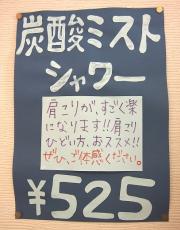 炭酸ミスト
シャワー
肩こりが、すごく楽
になります!!肩こり
ひどい方、おススメ!!
ぜひ、ご体感ください。
¥525